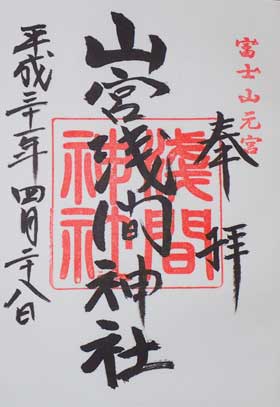 富士山元宮
奉拝
山宮浅間神社
淺間
神社
平成三十一年四月二十八日